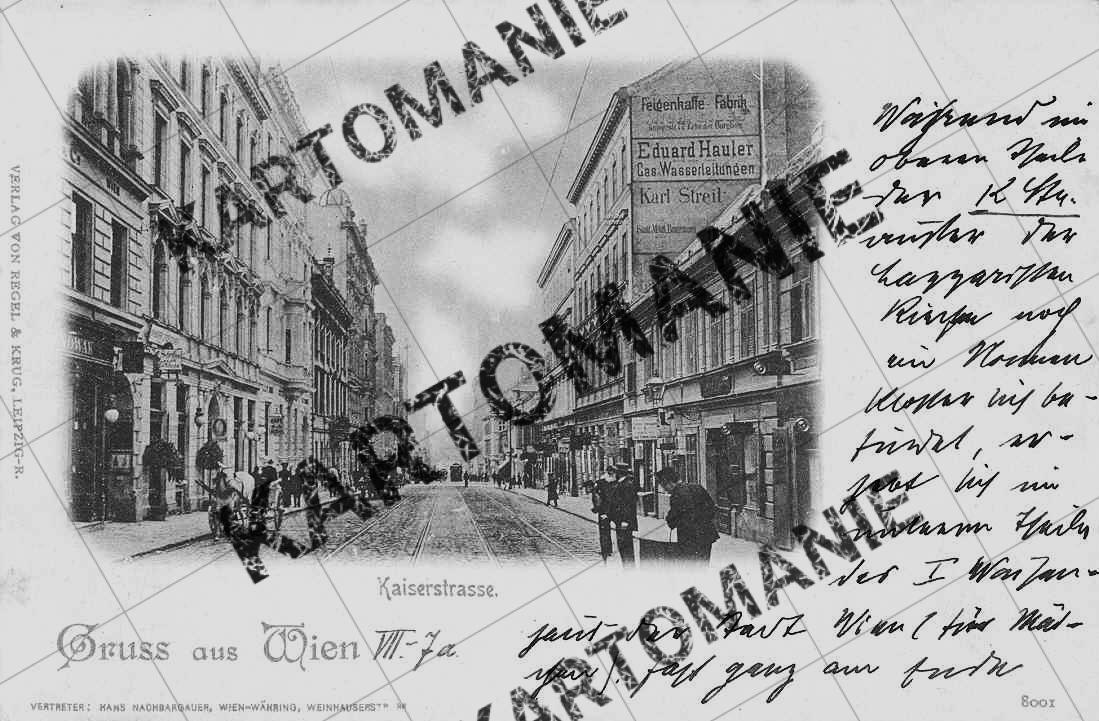 Feigenkaffe-Fabrik
Eduard Hauler
Gas.Wasserleitungen
Karl Streit
Während im
oberen Theile
der K Str.
außer der
Lazzaristen
Kirche noch
ein Nonnen
Kloster sich be-
findet, er-
hebt sich im
unteren Theile
des I Waisen-
haus der Stadt Wien (für Mäd-
chen), fast ganz am Ende
Kaiserstrasse.
Gruss aus Wien VII.-7a.
VERLAG VON REGEL & KRUG, LEIPZIG-R.
VERTRETER: HANS NACHBARGAUER, WIEN-WÄHRING, WEINHAUSERSTR
8001
KARTOMANIE
KARTOMANIE
KARTOMANIE
KARTOMANIE